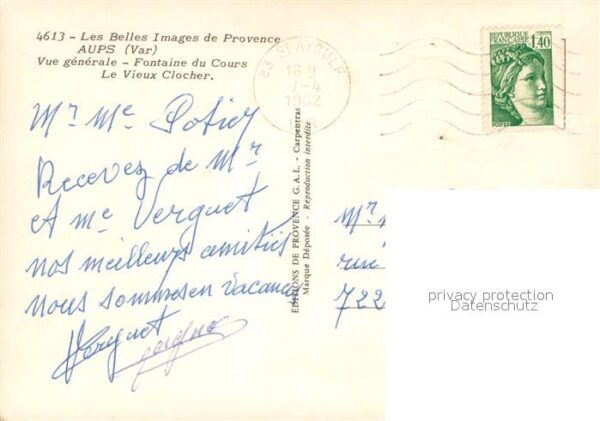 4613 - Les Belles Images de Provence
AUPS (Var)
Vue générale - Fontaine du Cours
Le Vieux Clocher.
83 ST AYGULF
16 H
7-4
1982
REPUBLIQUE
FRANÇAISE
1,40
Mr Me
Recevez de Mr
et Me Verguet
nos meilleurs amitiés
nous sommes en vacances
Verguet
EDITIONS DE PROVENCE G. A. L. - Carpentras
Marque Déposée - Reproduction interdite
Mr
rue
722
privacy protection
Datenschutz